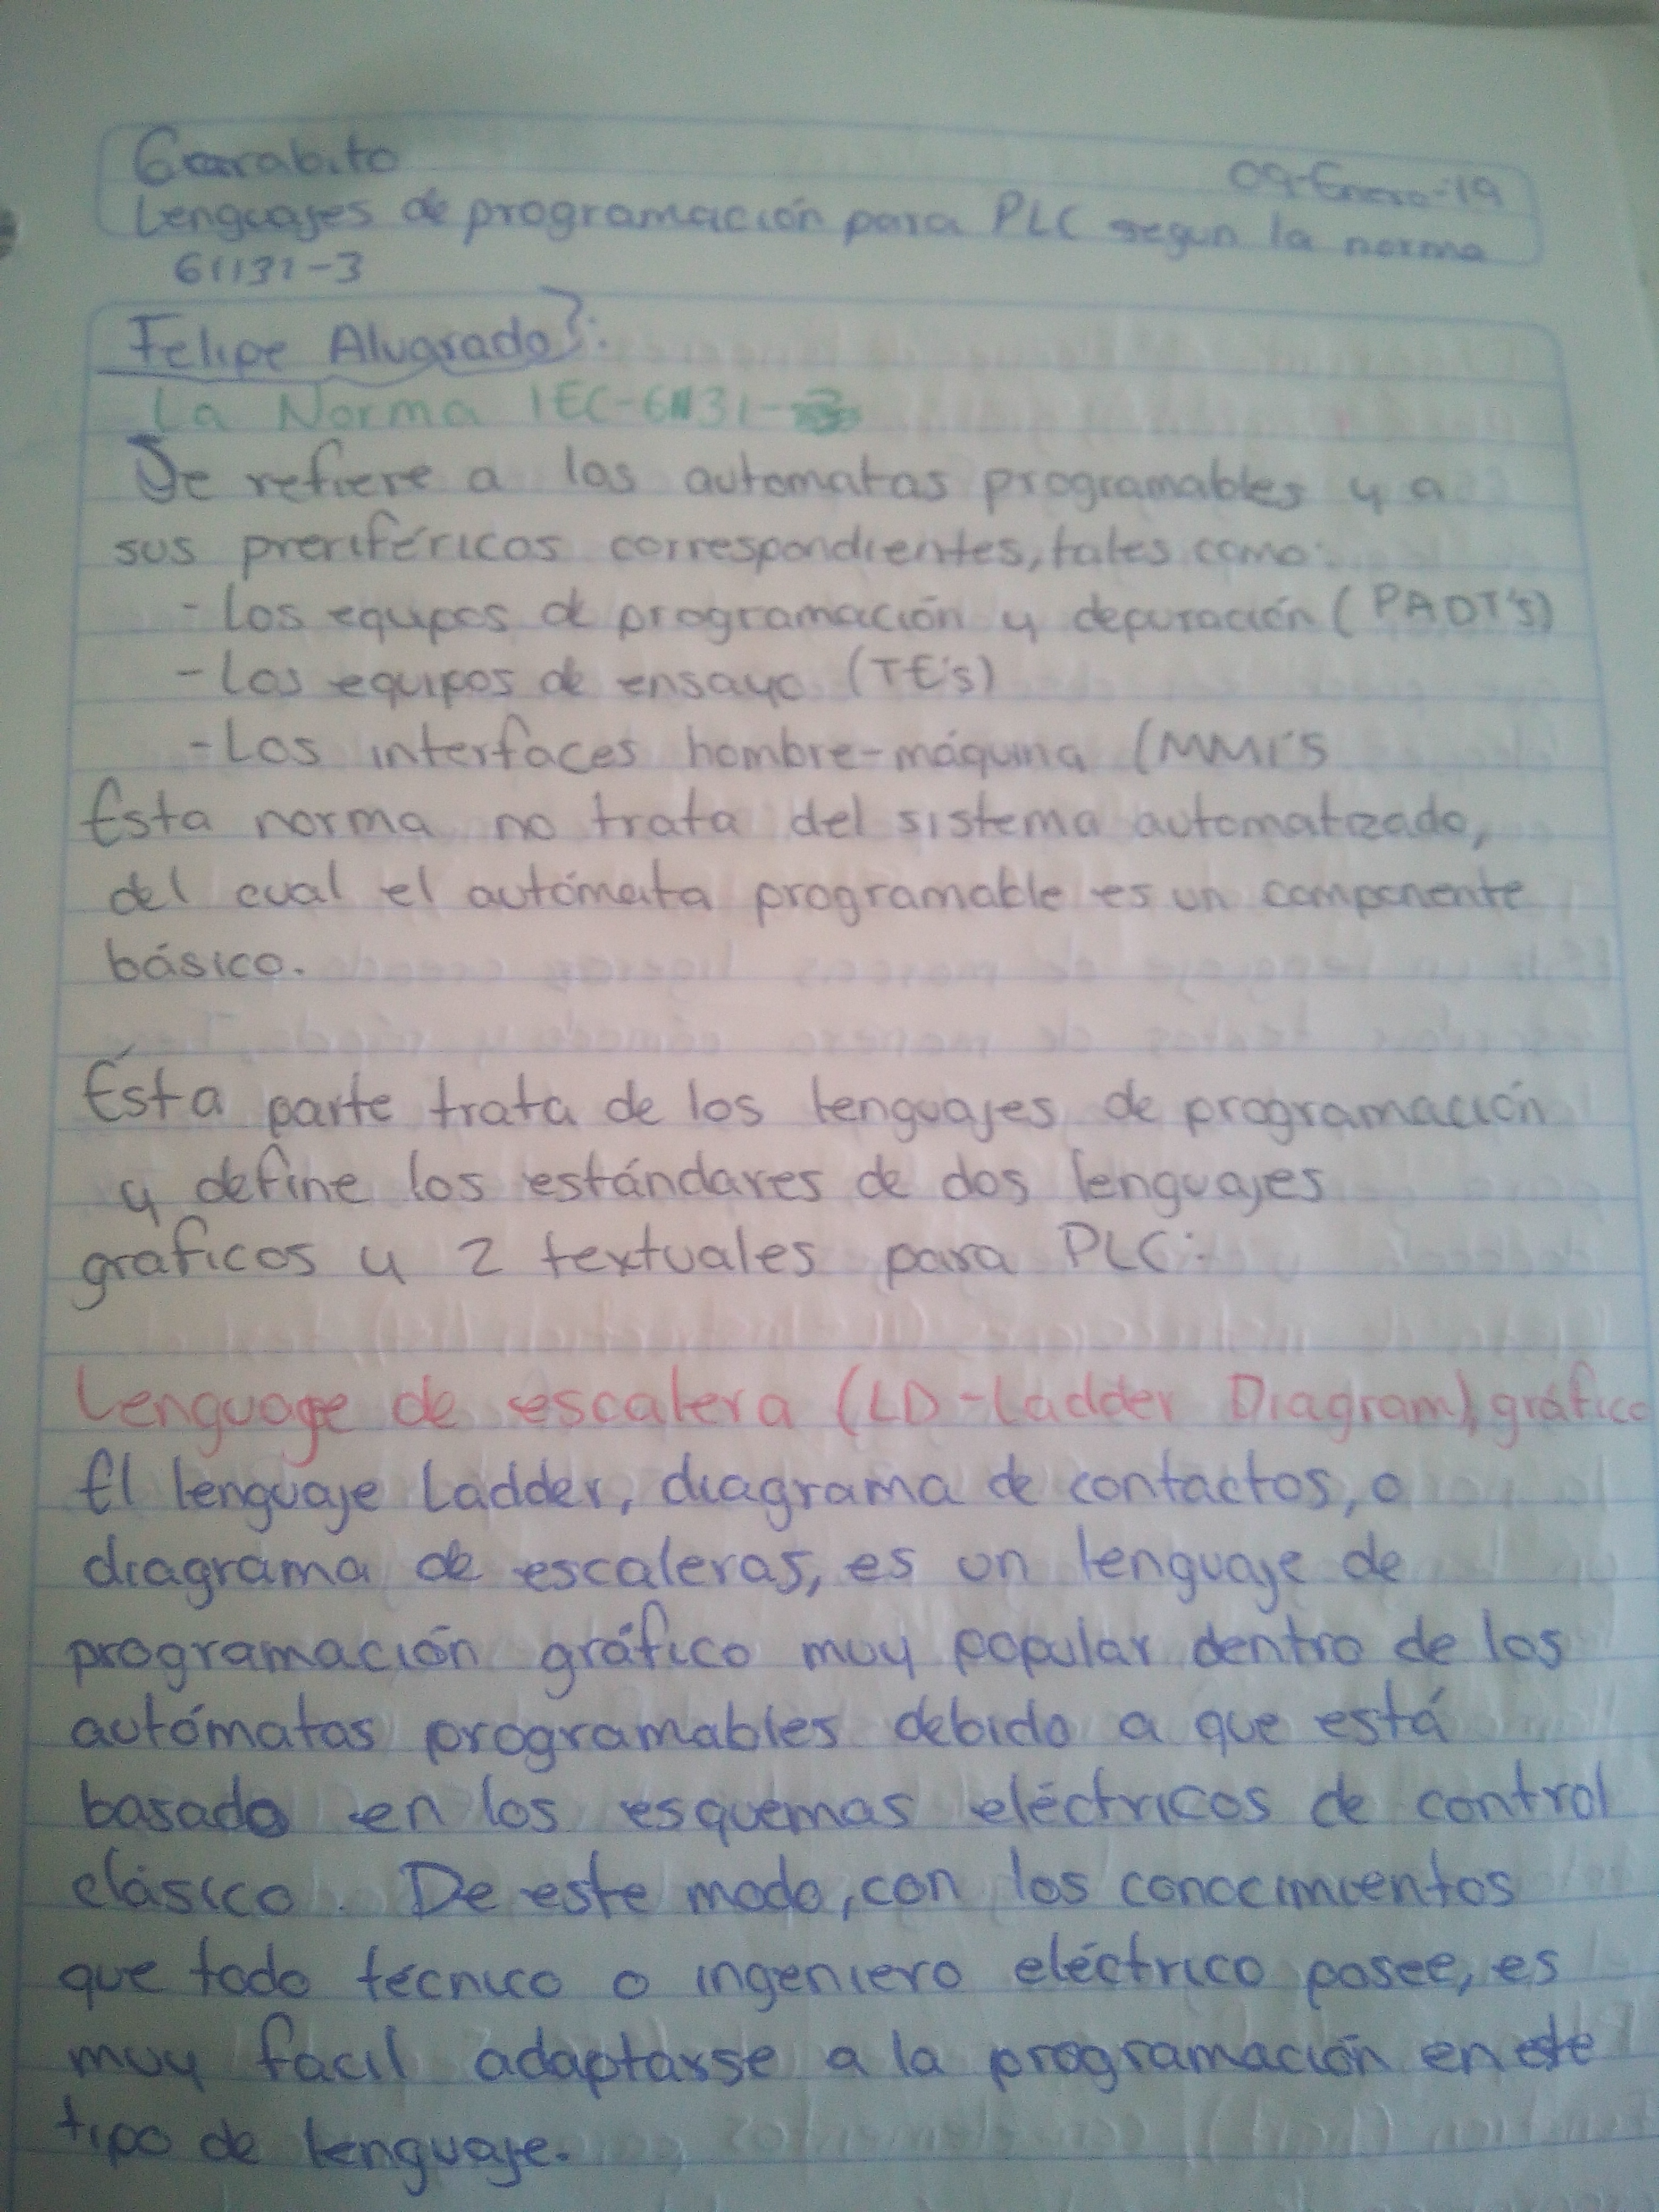 Garabito
09-Enero-19
Lenguajes de programación para PLC segun la norma
61131-3
Felipe Alvarado}:
La Norma IEC-61131-3
Se refiere a los automatas programables y a
sus preriféricos correspondientes, tales como:
- Los equipos de programación y depuración (PADT's)
- Los equipos de ensayo (TE's)
- Los interfaces hombre-máquina (MMI's
Esta norma no trata del sistema automatizado,
del cual el autómata programable es un componente
básico.
Esta parte trata de los lenguajes de programación
y define los estándares de dos lenguajes
gráficos y 2 textuales para PLC:
Lenguage de escalera (LD-Ladder Diagram), gráfico
El lenguaje Ladder, diagrama de contactos, o
diagrama de escaleras, es un lenguaje de
programación gráfico muy popular dentro de los
autómatas programables debido a que está
basado en los esquemas eléctricos de control
clásico. De este modo, con los conocimientos
que todo técnico o ingeniero eléctrico posee, es
muy facil adaptarse a la programación en este
tipo de lenguaje.